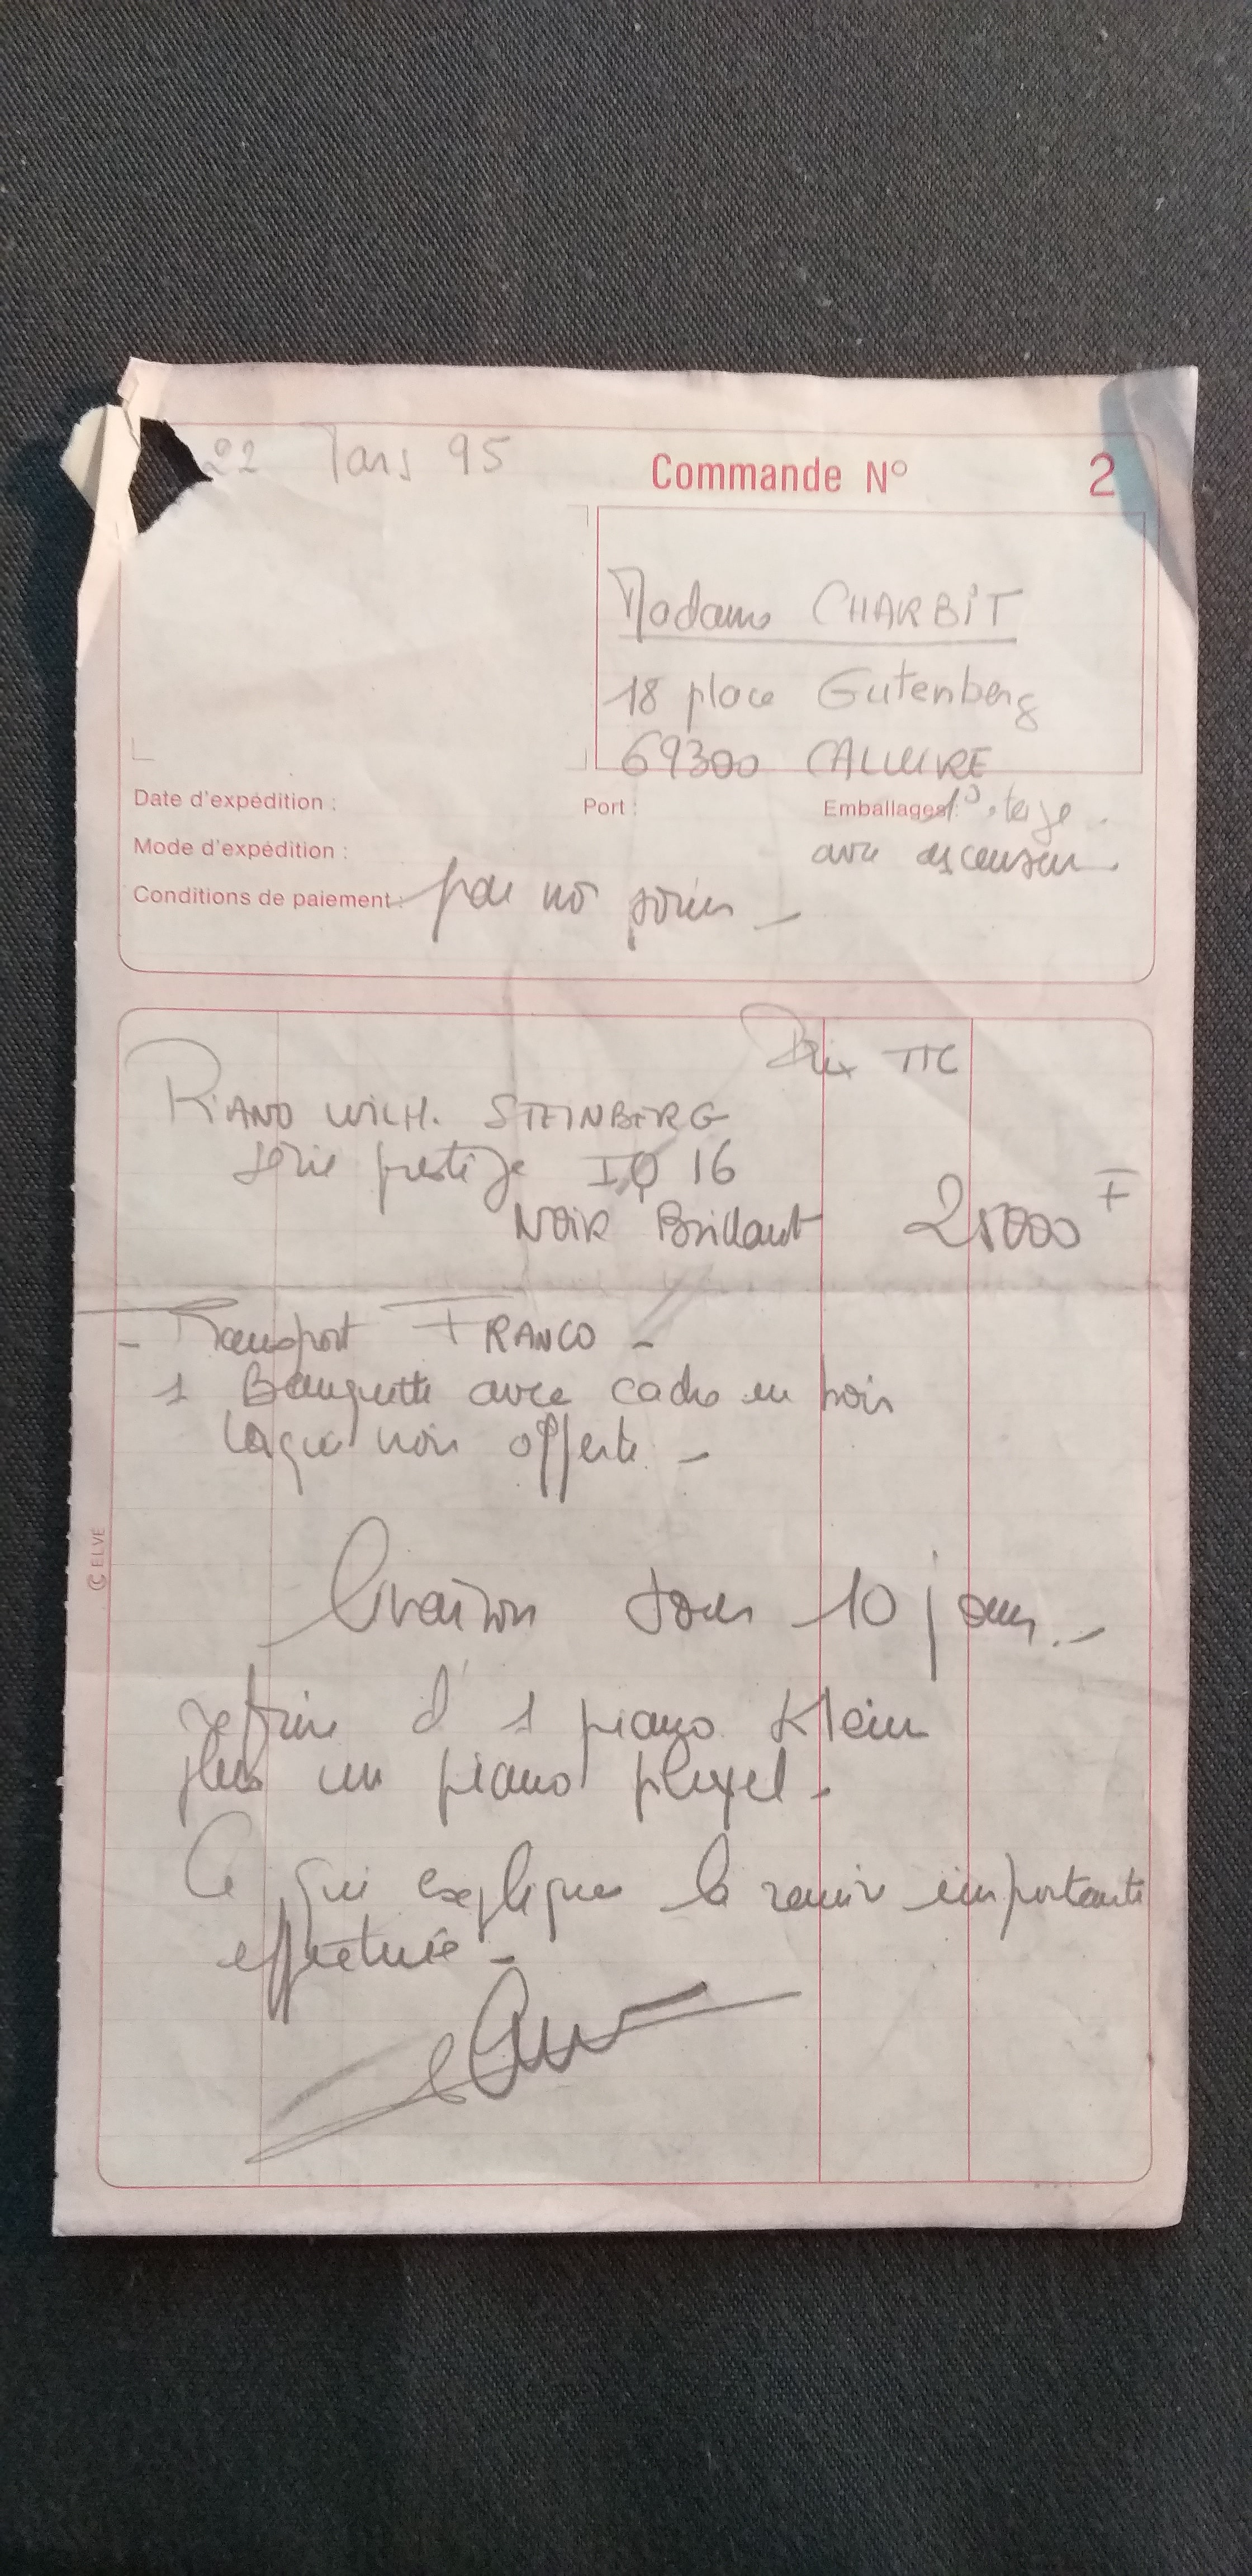 22 Mars 95
Commande N° 2
Madame CHARBIT
18 place Gutenberg
69300 CALUIRE
Date d'expédition :
Port :
Emballages :
1° étage
avec ascenseur
Mode d'expédition :
Conditions de paiement : par nos soins
Prix TTC
PIANO WILH. STEINBERG
série prestige IQ 16
NOIR Brillant 25000 F
- Transport FRANCO -
1 Banquette avec cadre en bois
laqué noir offerte -
livraison sous 10 jours. -
reprise d' 1 piano Klein
plus un piano pleyel -
Ce qui explique la remise importante
effectuée -
© ELVE